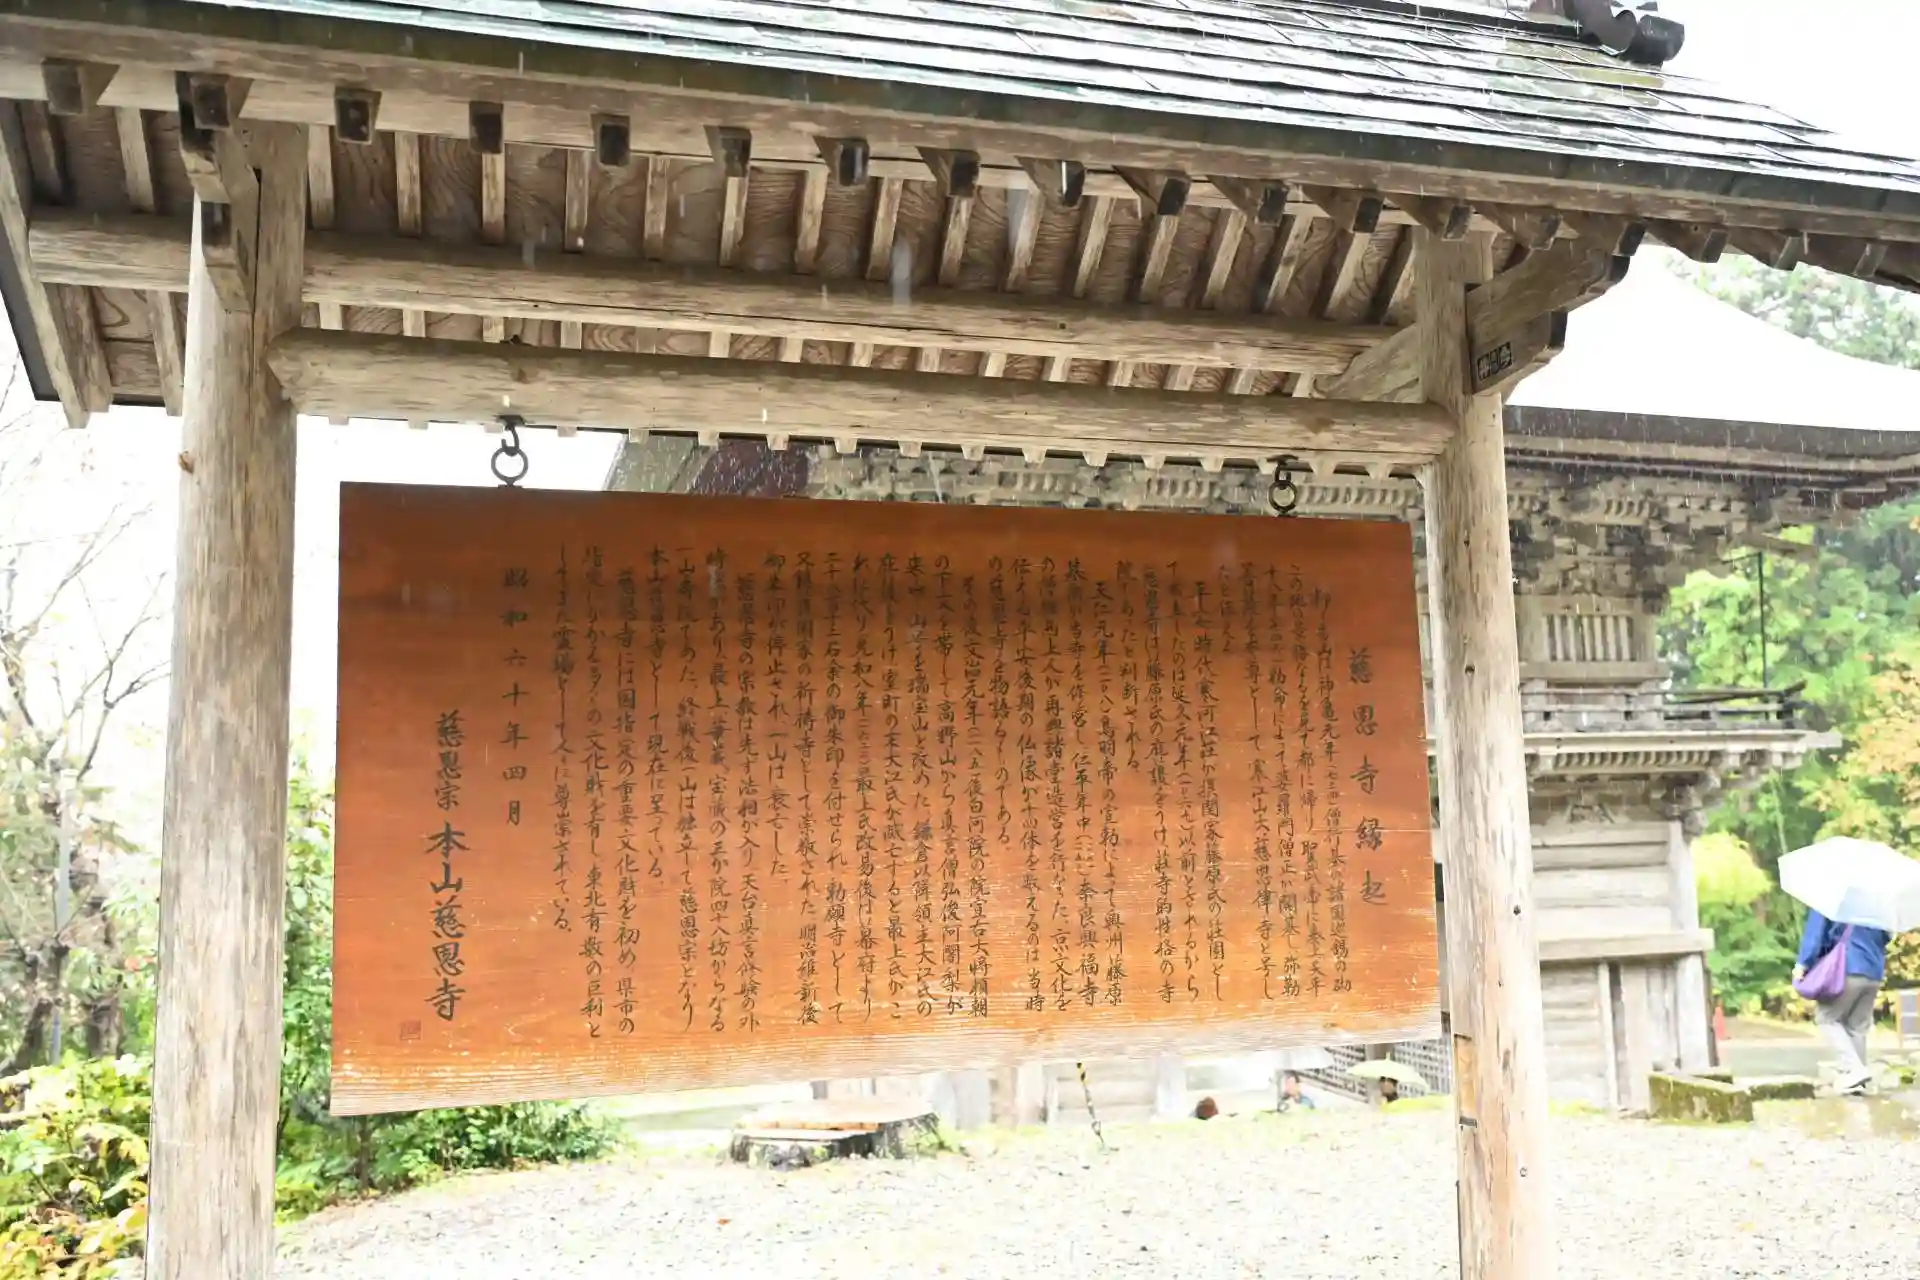 慈恩寺縁起
抑々当山は神亀元年(七二四)僧行基が諸国巡錫の砌
この地の景勝なるを見て都に帰り聖武帝に奏上天平
十八年(七四六)勅命によって婆羅門僧正が開基し弥勒
菩薩を本尊として寒江山大慈恩律寺と号し
たと伝える。
平安時代寒河江荘が摂関家藤原氏の荘園とし
て成立したのは延久元年(一〇六九)以前とされるから
慈恩寺は藤原氏の庇護をうけ荘寺的性格の寺
院であったと判断される。
天仁元年(一一〇八)鳥羽帝の宣勅によって奥州藤原
基衡が当寺を修営し、仁平年中 奈良興福寺
の僧願西上人が再興諸堂造営を行なった。京文化を
伝える平安後期の仏像が十四体を数えるのは当時
の慈恩寺を物語るものである。
その後文治元年(一一八五)後白河院の院宣右大将頼朝
の下文を帯して高野山から真言僧弘俊阿闍梨が
来り 山号を瑞宝山と改めた。鎌倉以降領主大江氏の
庇護をうけ室町の末大江氏が滅亡すると最上氏がこ
れに代り元和八年(一六二二)最上氏改易後は幕府より
二千八百十二石余の御朱印を付せられ、勅願寺として
又鎮護国家の祈祷寺として崇敬された。明治維新後
御朱印が停止され、一山は衰亡した。
慈恩寺の宗教は先ず法相が入り天台真言修験の外
時宗があり、最上、華蔵、宝蔵の三か院四十八坊からなる
一山寺院であった。終戦後一山は独立して慈恩宗となり
本山慈恩寺として現在に至っている。
慈恩寺には国指定の重要文化財を初め、県市の
指定しかかる多くの文化財を有し、東北有数の巨刹と
してまた霊場として人々に尊崇されている。
昭和六十年四月
慈恩宗 本山慈恩寺